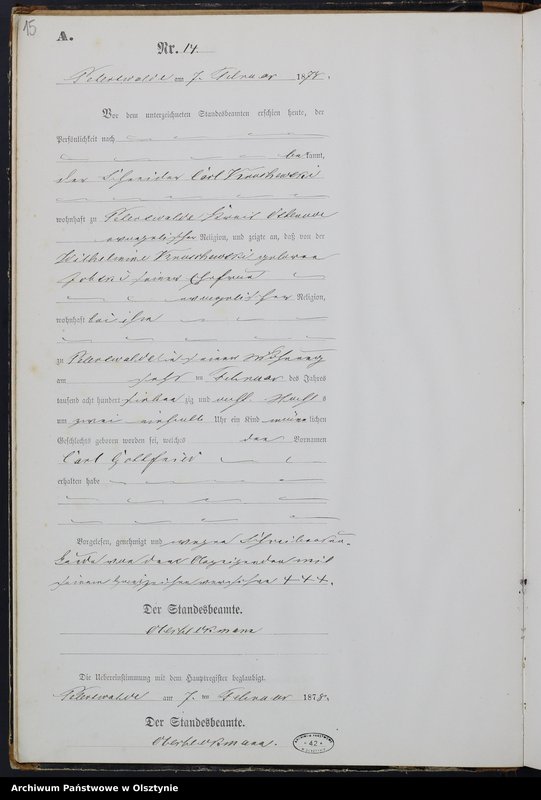 15
A.
Nr. 14.
Peterswalde am 7. Februar 1878.
Vor dem unterzeichneten Standesbeamten erschien heute, der
Persönlichkeit nach
bekannt,
der Schneider Carl
wohnhaft zu Peterswalde Kreis Osterode
evangelischer Religion, und zeigte an, daß von der
Wilhelmine geborene
seiner Ehefrau
evangelischer Religion,
wohnhaft bei ihm
zu Peterswalde in seiner Wohnung
am sechs ten Februar des Jahres
tausend acht hundert siebenzig und acht Nachts
um zwei einhalb Uhr ein Kind männlichen
Geschlechts geboren worden sei, welches den Vornamen
Carl Gottfried
erhalten habe
Vorgelesen, genehmigt und wegen Schreibensun-
kunde von dem Anzeigenden mit
seinem Handzeichen versehen +++.
Der Standesbeamte.
Die Uebereinstimmung mit dem Hauptregister beglaubigt.
Peterswalde am 7. ten Februar 1878.
Der Standesbeamte.
42
Archiwum Państwowe w Olsztynie